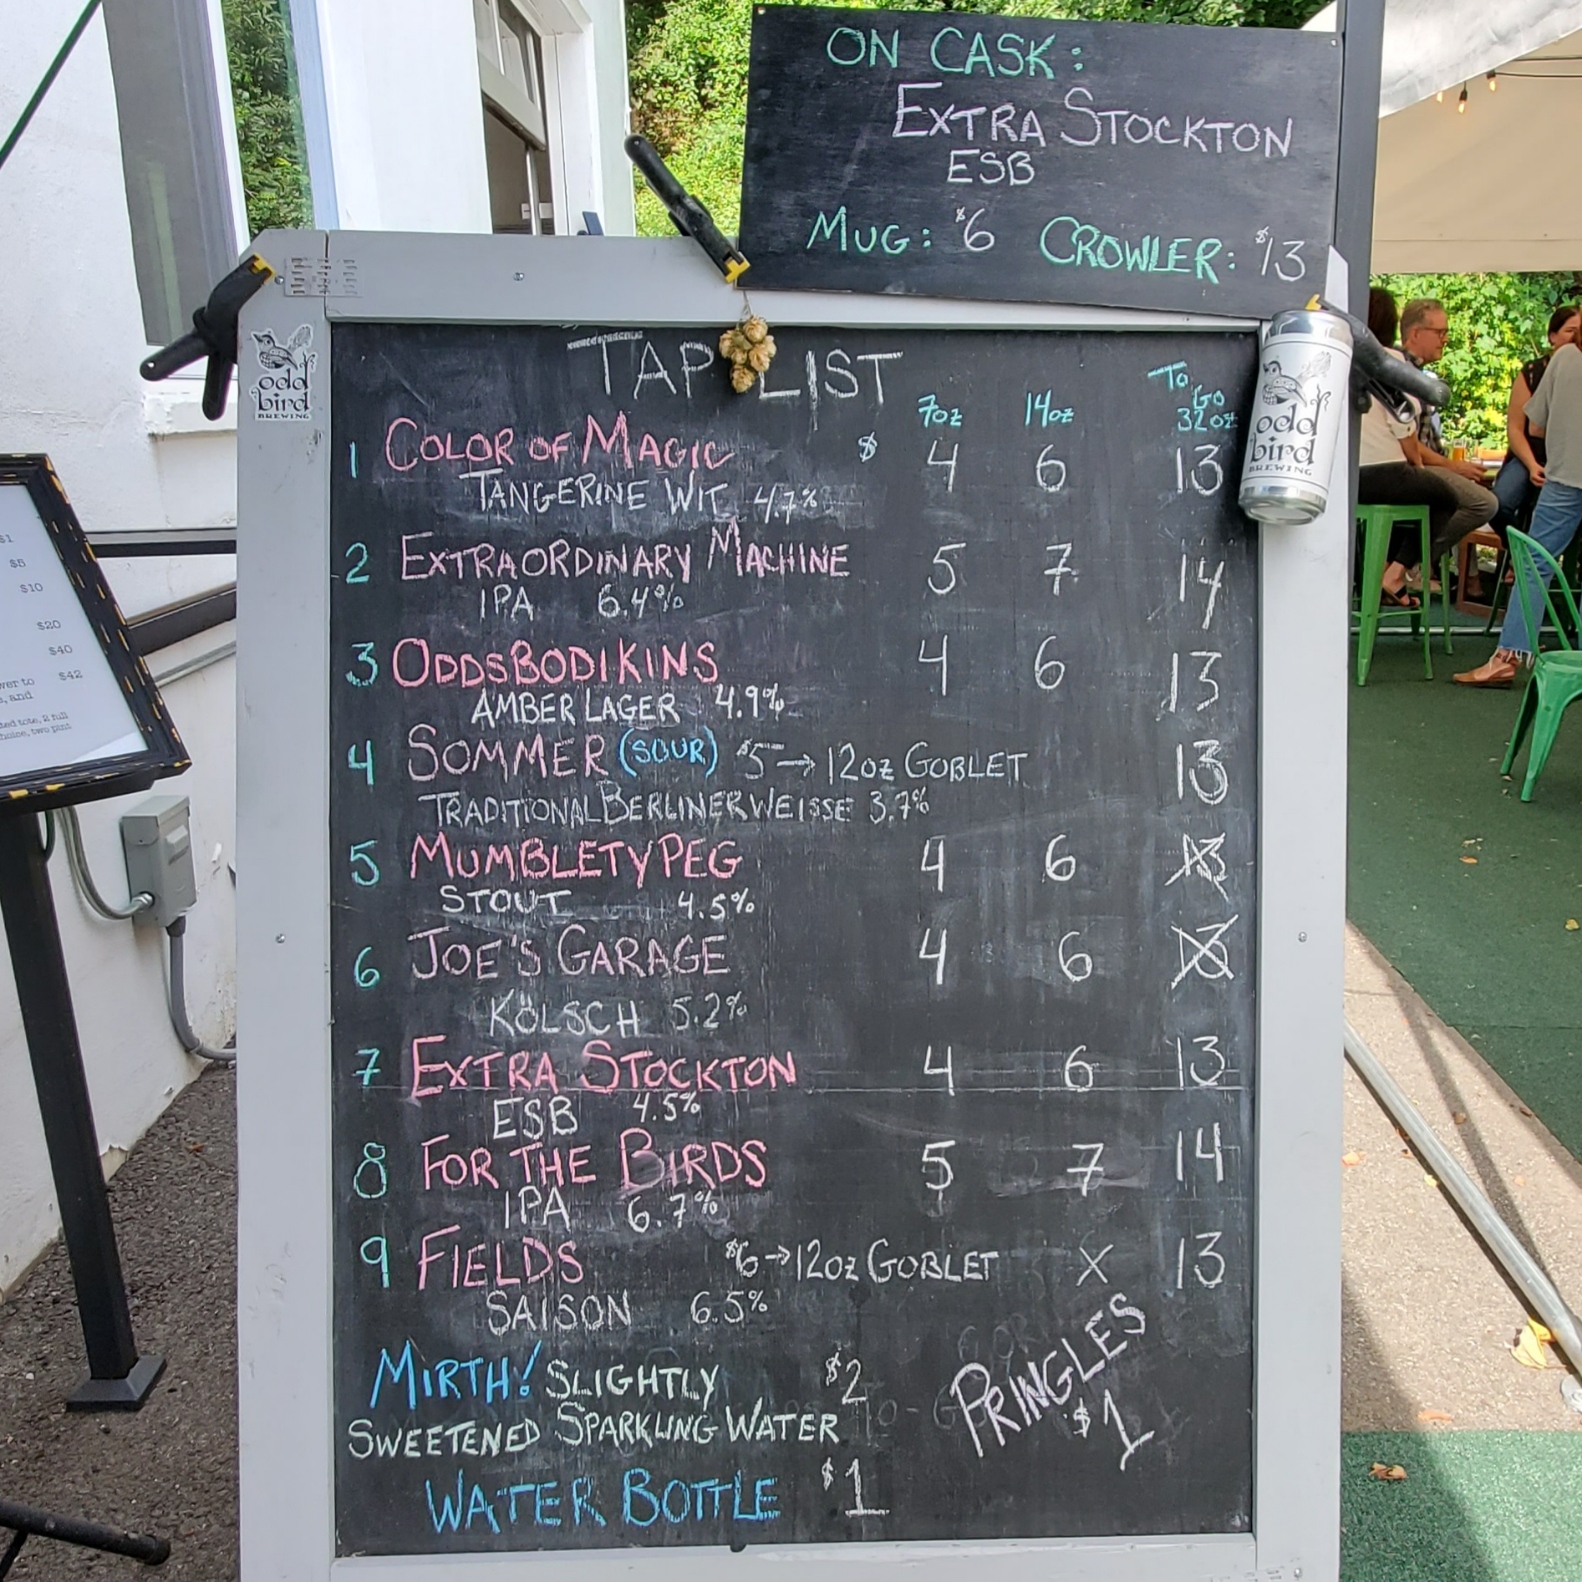 ON CASK:
EXTRA STOCKTON
ESB
MUG: $6 CROWLER: $13
odd
bird
BREWING
odd
bird
BREWING
TAP LIST
7oz 14oz To Go 32oz
1 COLOR OF MAGIC $ 4 6 13
TANGERINE WIT 4.7%
2 EXTRAORDINARY MACHINE 5 7 14
IPA 6.4%
3 ODDSBODIKINS 4 6 13
AMBER LAGER 4.9%
4 SOMMER (SOUR) $5→12oz GOBLET 13
TRADITIONAL BERLINER WEISSE 3.7%
5 MUMBLETYPEG 4 6 13
STOUT 4.5%
6 JOE'S GARAGE 4 6 13
KÖLSCH 5.2%
7 EXTRA STOCKTON 4 6 13
ESB 4.5%
8 FOR THE BIRDS 5 7 14
IPA 6.7%
9 FIELDS $6→12oz GOBLET X 13
SAISON 6.5%
MIRTH! SLIGHTLY $2
SWEETENED SPARKLING WATER
WATER BOTTLE $1
PRINGLES
$1
$1
$5
$10
$20
$40
$42